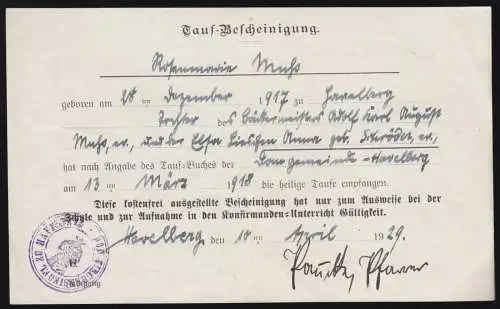 Tauf-Bescheinigung.
Rosemarie Muhs
geboren am 20 ten Dezember 1917 zu Havelberg
Tochter des Bäckermeisters Adolf Karl August
Muhs, ev., und der Elsa Lieschen Anna geb. Schröder, ev.,
hat nach Angabe des Tauf-Buches der Domgemeinde-Havelberg
am 13 ten März 1918 die heilige Taufe empfangen.
Diese kostenfrei ausgestellte Bescheinigung hat nur zum Ausweise bei der
Schule und zur Aufnahme in den Konfirmanden-Unterricht Gültigkeit.
Havelberg, den 10 ten April 1929.
Pfarrer